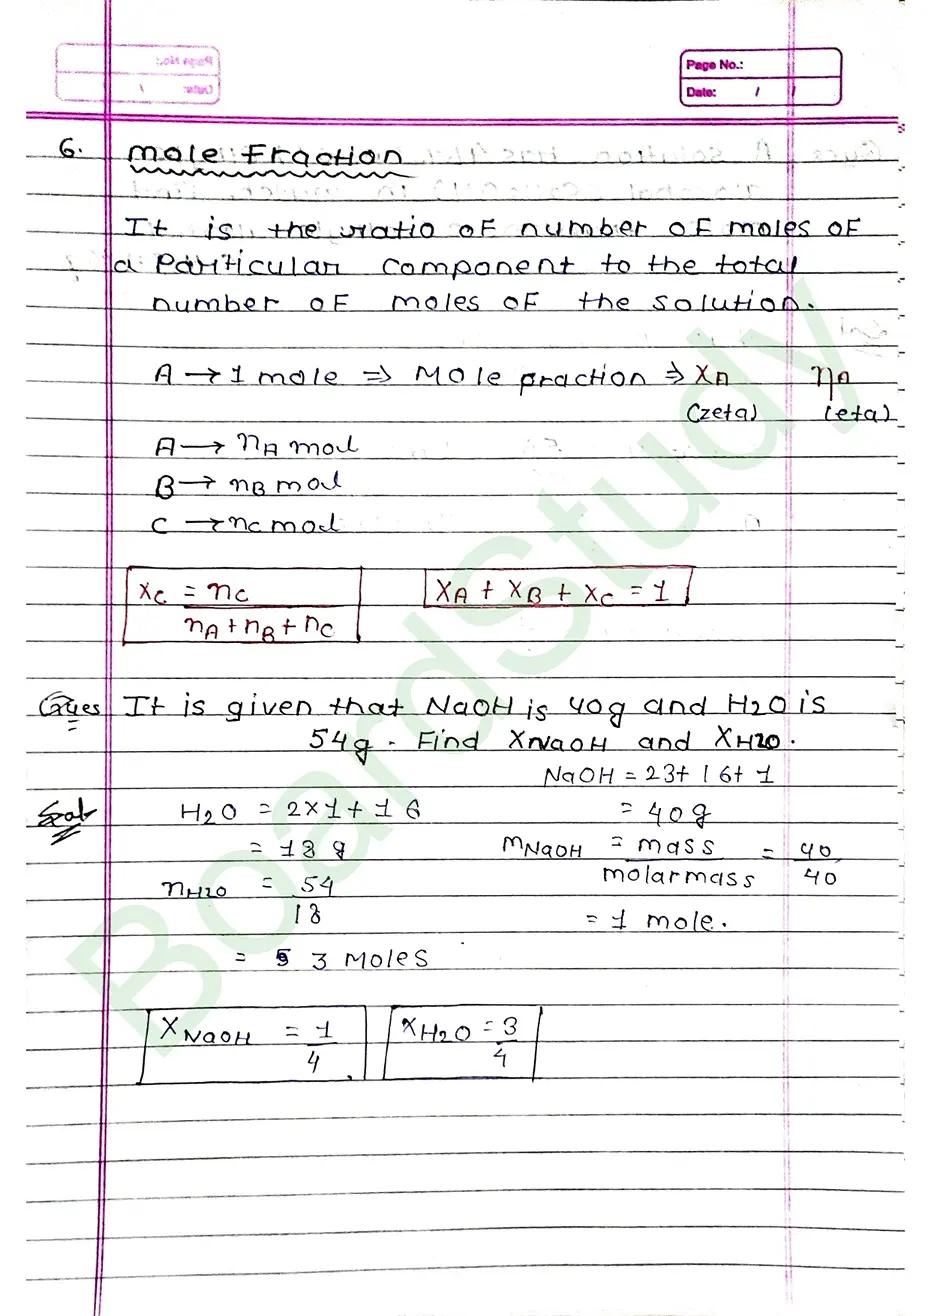 Page No.:
Date: / /
6. Mole Fraction
It is the ratio of number of moles of
a Particular component to the total
number of moles of the solution.
A → 1 mole ⇒ Mole praction ⇒ XA ηA
(zeta) (eta)
A → nA mol
B → nB mol
C → nC mol
XC = nC
nA + nB + nC
XA + XB + XC = 1
Ques It is given that NaOH is 40g and H2O is
54g. Find XNaOH and XH2O.
NaOH = 23+16+1
Sol H2O = 2×1+16 = 40g
= 18 g mNaOH = mass = 40
molarmass 40
nH2O = 54
18 = 1 mole.
= 3 Moles
XNaOH = 1 XH2O = 3
4 4
BoardStudy